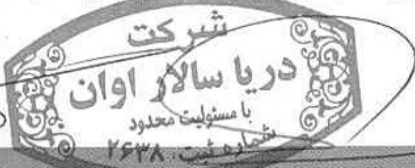 شرکت
دریا سالار اوان
با مسئولیت محدود
شماره ثبت: ۲۶۳۸